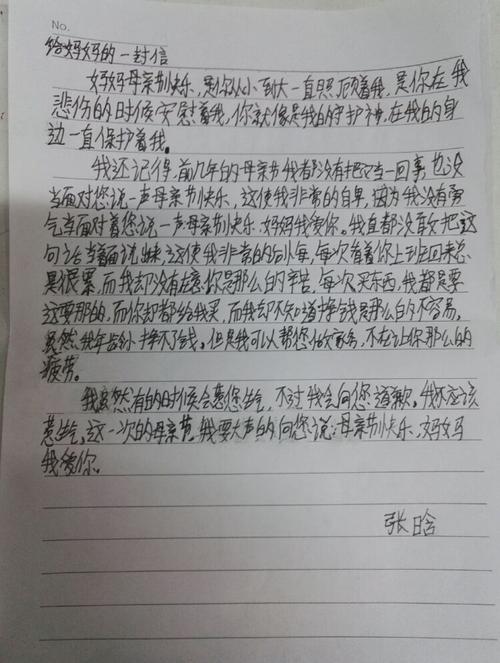 No.
给妈妈的一封信
妈妈母亲节快乐，是你从小到大一直照顾着我，是你在我
悲伤的时候安慰着我，你就像是我的守护神，在我的身
边一直保护着我。
我还记得，前几年的母亲节我都没有把它当一回事也没
当面对您说一声母亲节快乐，这使我非常的自卑，因为我没有勇
气当面对着您说一声母亲节快乐，妈妈我爱你。我直都没敢把这
句话当着面说出来，这使我非常的后悔，每次看着你上班回来总
是很累，而我却没有在意你是那么的辛苦，每次买东西，我都是要
这要那的，而你却都给我买，而我却不知道挣钱是那么的不容易，
虽然，我年龄小挣不了钱。但是我可以帮您做家务，不在让你那么的
疲劳。
我虽然有的时候会惹您生气，不过我会向您道歉。我不应该
惹生气，这一次的母亲节，我要大声的向您说：母亲节快乐，妈妈
我爱你。
张晗